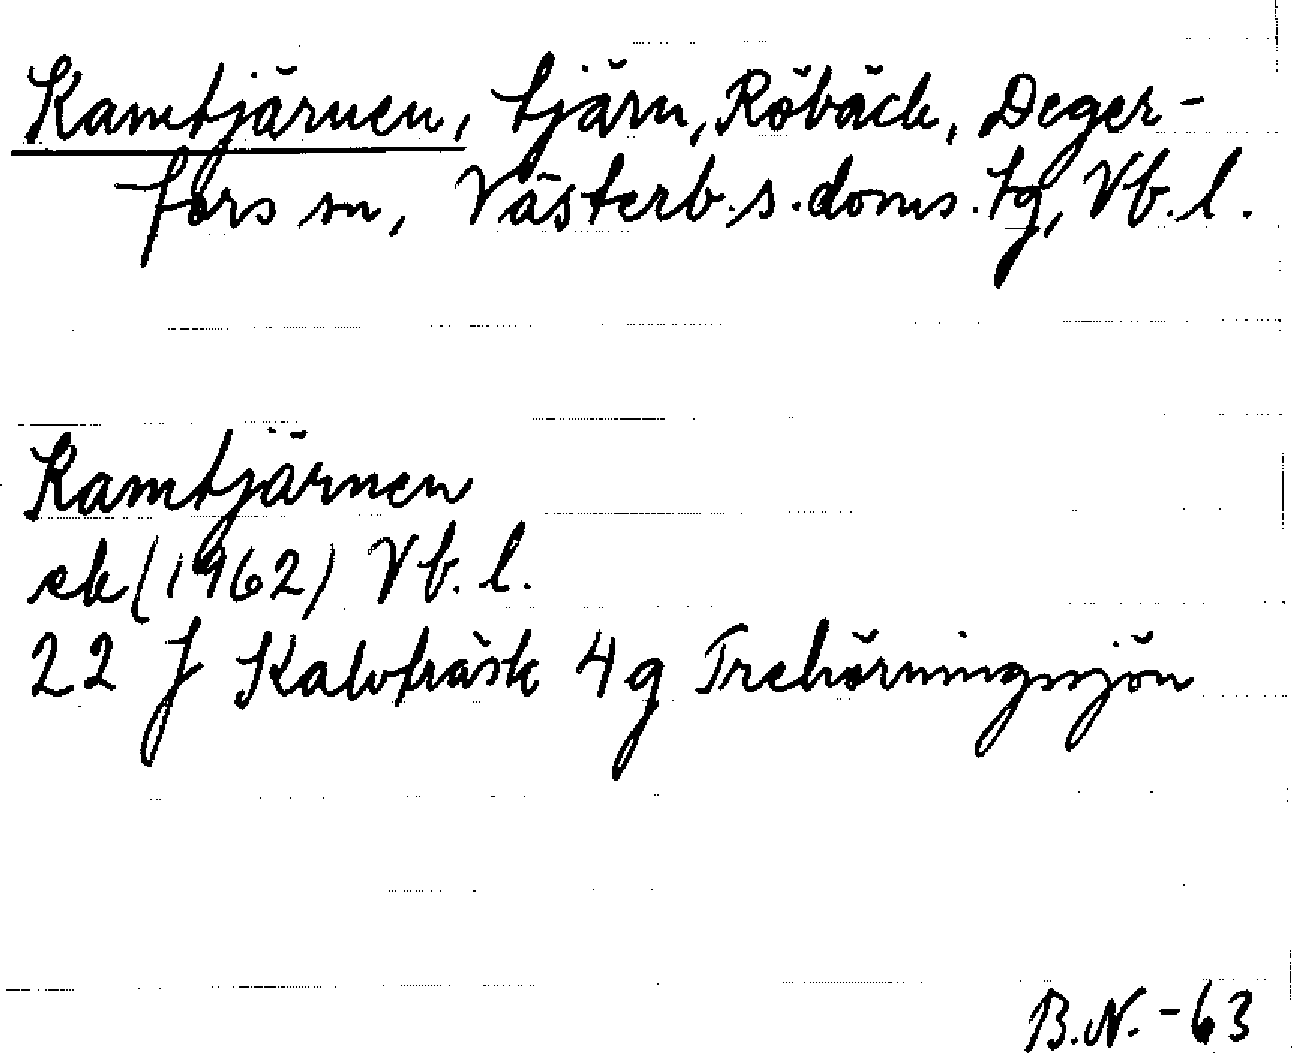 Kamtjärnen, tjärn, Röbäck, Deger-
fors sn, Västerb.s.doms.tg, Vb.l.
Kamtjärnen
ek (1962) Vb.l.
22 J Kalvträsk 4g Trehörningssjön
B.N.-63